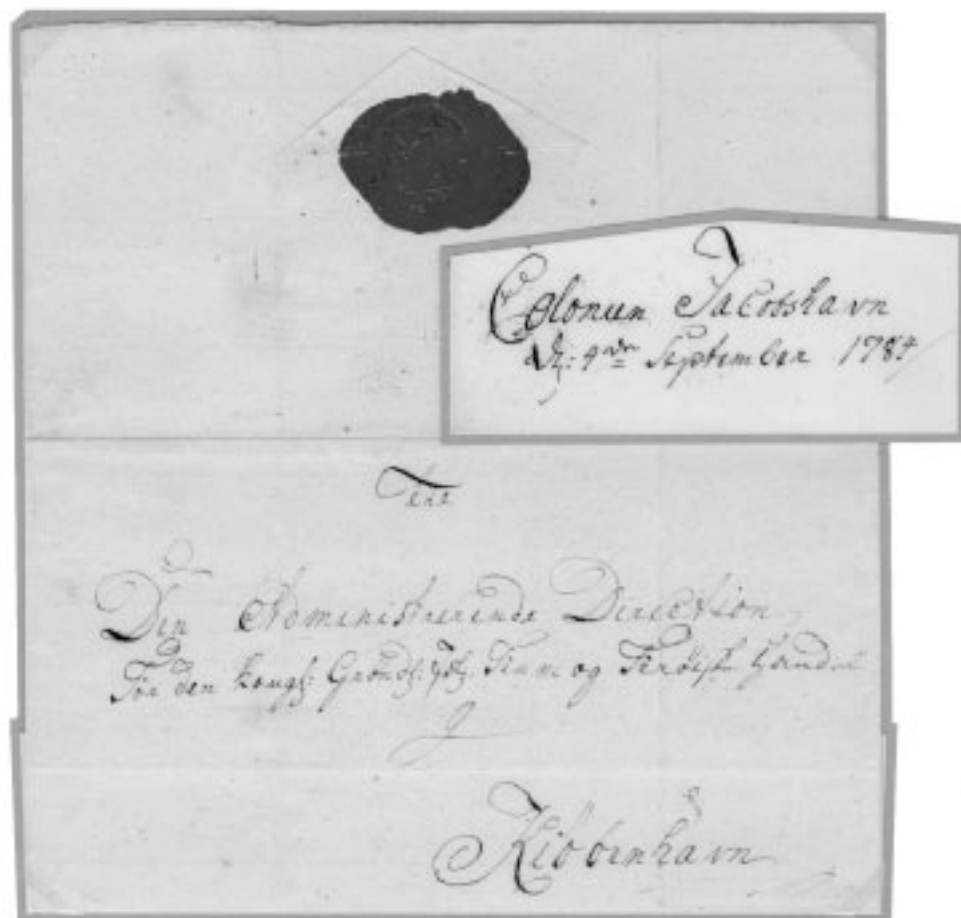 Colonien Jacobshavn
d: 4de September 1784
Til
Den Administrerende Direction
For den kongl: Grønl: Isl: Finm: og Færöiske Handel
I
Kiöbenhavn